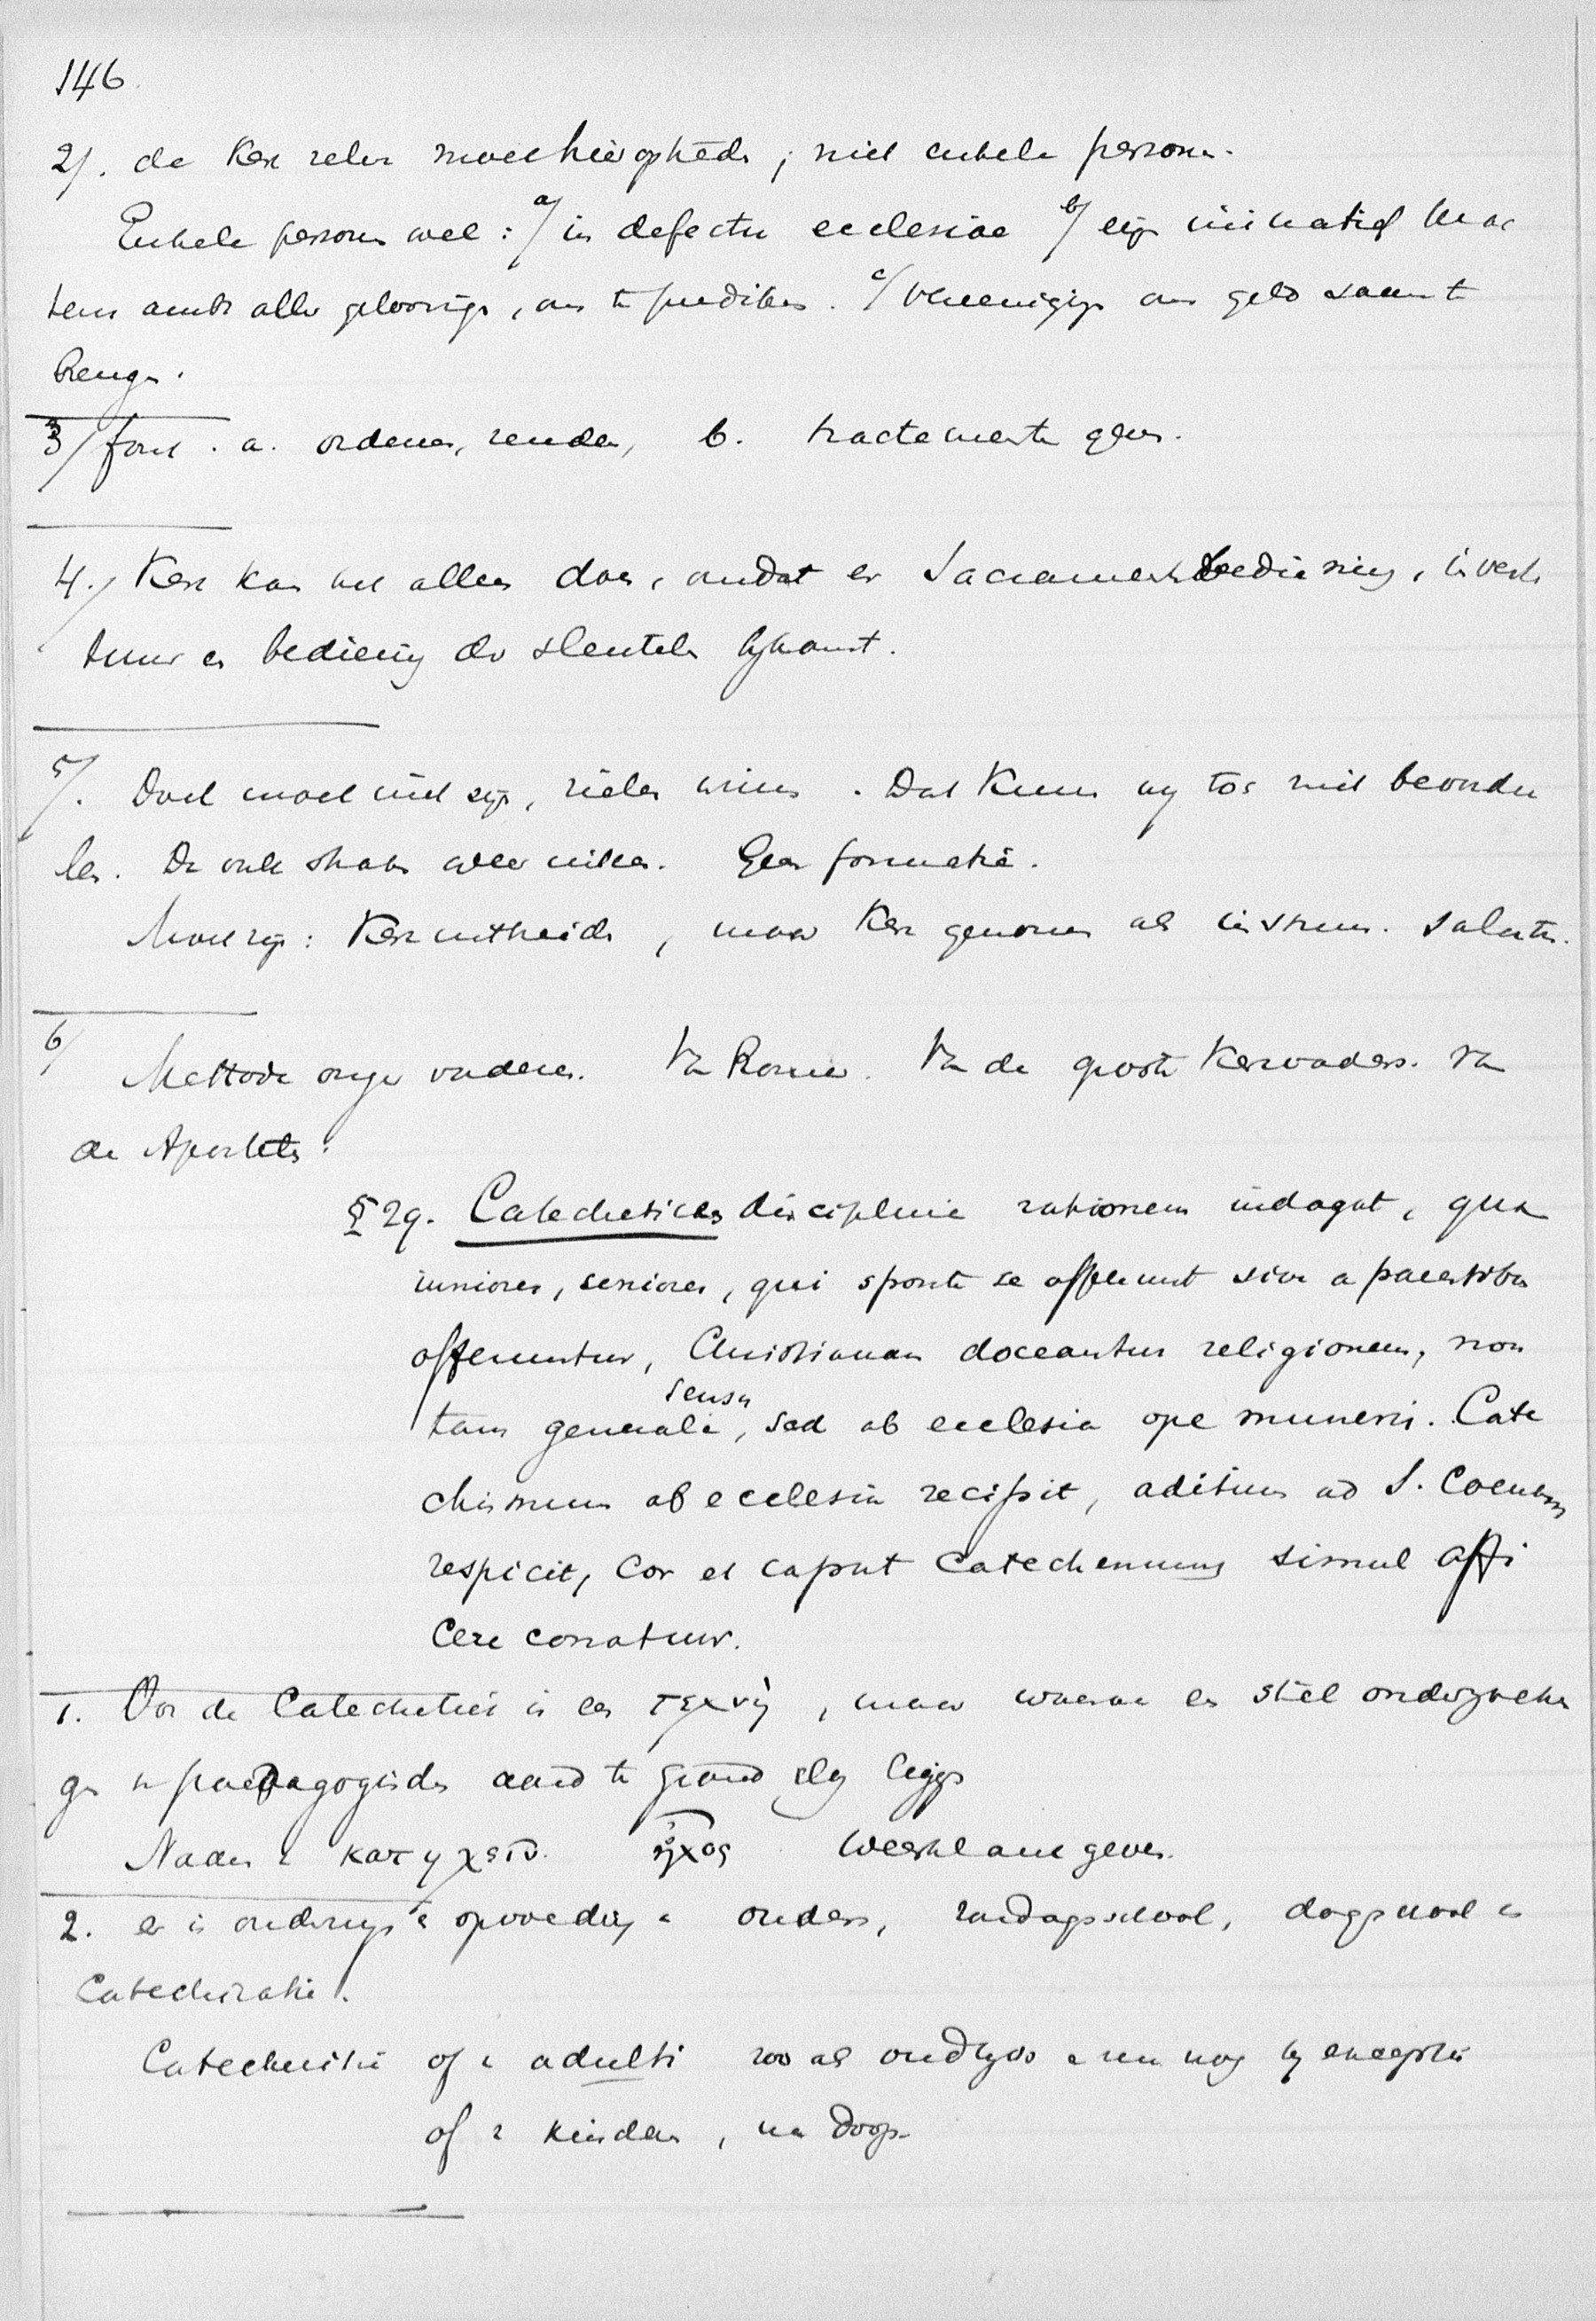 146
2/. de Kerk zelve moet hierop ; niet enkele personen.
Enkele personen wel : a/ in defectu ecclesiae b/ eigen initiatief krac
tens ambt aller geloovigen, om te prediken. c/ vereenigingen om geld saam te
brengen.
3/ fout. a. ordenen, zenden, b. tractementen geven.
4./ Kerk kan het alleen doen, omdat er Sacramentsbediening, invest
tuur en bediening der sleutelen bijkomt.
5/. Doel moet niet zijn, zielen winnen. Dat kunnen wij toch niet beoordee
len. De oude weer. Geen formatie.
Moet zijn: Kerk, maar Kerk genomen als instrum. salutis.
6/ Methode onzer vaderen. Van Rome. Van de groote Kerkvaders. Van
de Apostelen.
§ 29. Catechetices disciplina rationem indagat, qua
iuniores, seniores, qui sponte se offerunt sive a parentibus
offeruntur, Christianam doceantur religionem, non
sensu
tam generali, sed ab ecclesia ope muneris. Cate
chismum ab ecclesia recipit, aditum ad S. Coenam
respicit, cor et caput catechenums simul affi
cere conatur.
1. Voor de Catechetiek is een τεχνή, maar waarvan een stel onderzoekin
gen v paedagogischen aard te grond slag liggen
Naam v κατηχεῖν. ἦχος weerklank geven.
2. er is onderwijs & opvoeding v ouders, zondagsschool, dagschool en
Catechisatie.
Catechisatie of v adulti zoo als oudtijds en nu nog bij exceptie
of v kinderen, na Doop